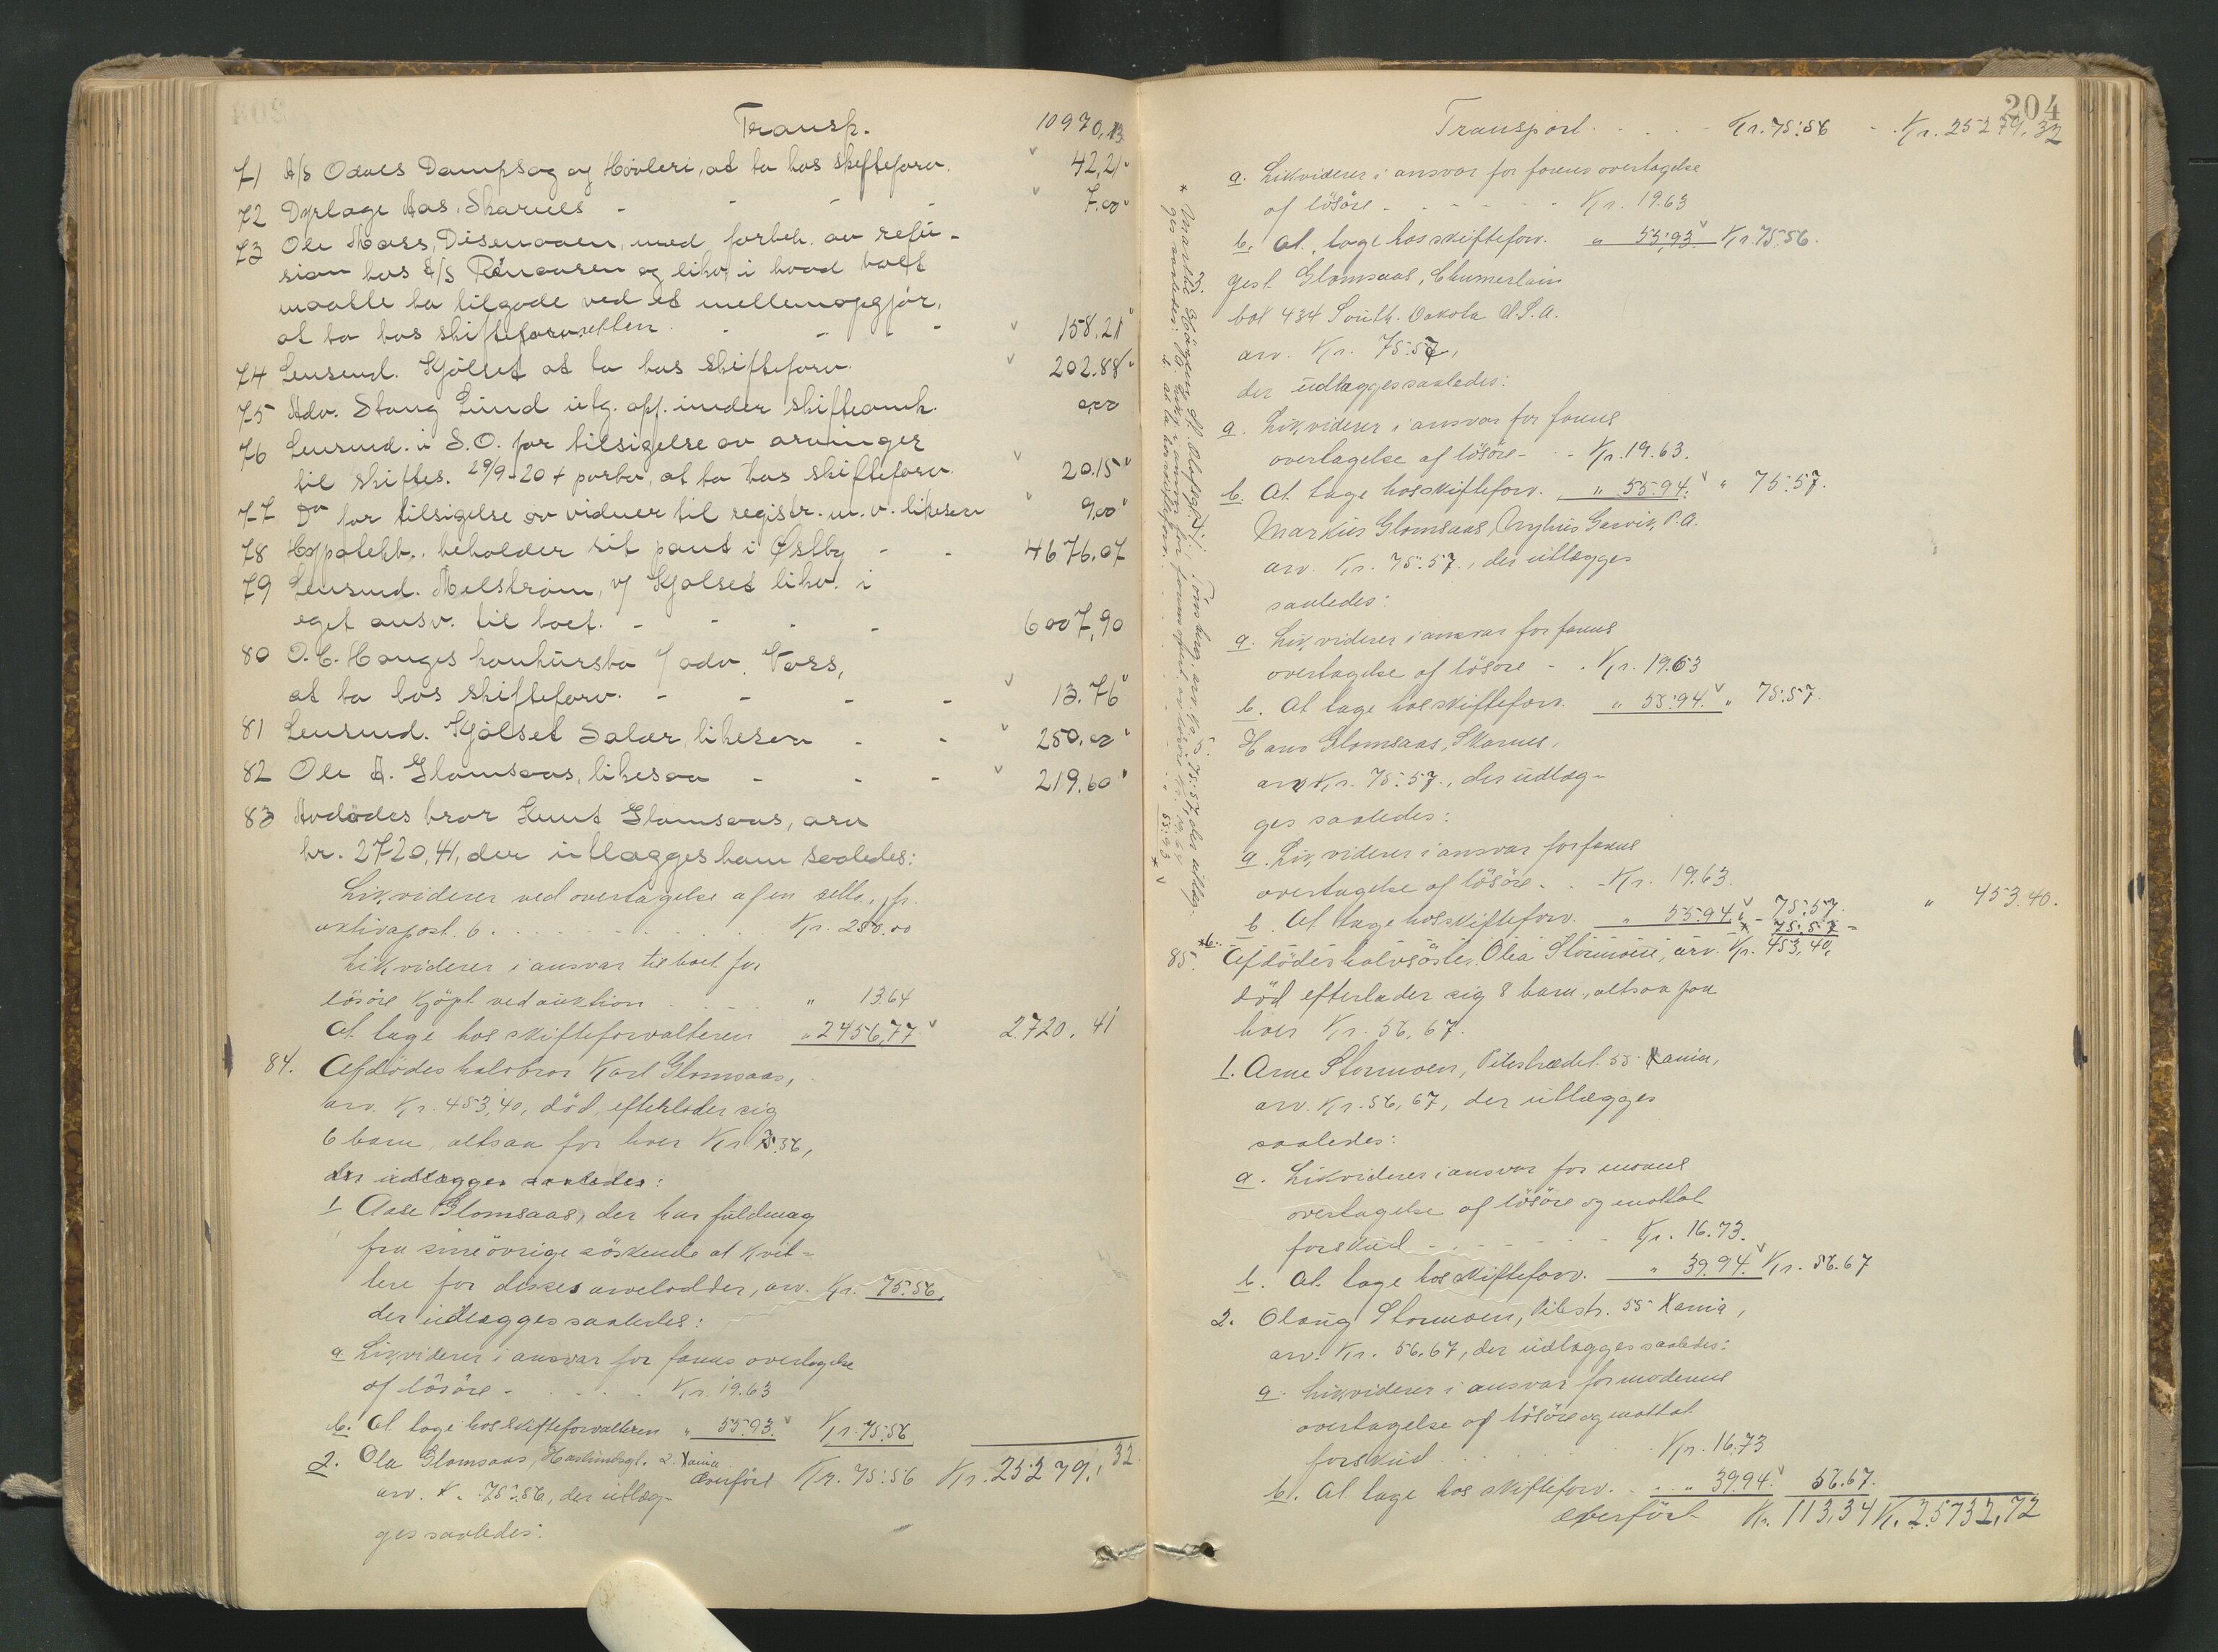 Transp. 10970,13
71 A/S Odals Dampsag og Høvleri, at ta hos skifteforv. 42,21
72 Dyrlæge Aas, Skarnes - - - - 7.00
73 Ole Moss, Disenaaen, med forbeh. av refu-
sion hos A/S og likv. i hvad boet
maatte ha tilgode ved et mellemopgjør,
at ta hos skifteforvalteren. - - - 158,21
74 Lensmd. Kjølset at ta hos skifteforv. 202.88
75 Adv. Stang Lund utg. opf. under skifteomk. 0,00
76 Lensmd. i S.O. for tilsigelse av arvinger
til skiftes. 29/9-20 + porto, at ta hos skifteforv. 20.15
77 Do for tilsigelse av vidner til registr. m.v. likesaa 9,00
78 Hypotekb. beholder sit pant i Østby - - 4676.07
79 Lensmd. Melstrøm, v/ Kjølset likv. i
eget ansv. til boet. - - - - 6007,90
80 O.C. Hanges konkursbo v/ adv. Vors,
at ta hos skifteforv. - - - - 13.76
81 Lensmd. Kjølset Salær, likesaa - - 250.00
82 Ole A. Glomsaas, likesaa - - - 219.60
83 Avdødes bror Knut Glomsaas, arv
kr. 2720,41, der utlægges ham saaledes:
Likviderer ved overtagelse af en , jfr.
aktivapost. 6. . . . . . . Kr. 250.00
Likviderer i ansvar til boet for
løsøre kjøpt ved auktion . . . " 13.64
At tage hos skifteforvalteren " 2456,77 2720. 41
84. Afdødes halvbror Karl Glomsaas,
arv. Kr. 453,40, död, efterlader sig
6 barn, altsaa for hver Kr. 75.56,
der udlægges saaledes:
1 Aase Glomsaas, der har fuldmag
fra sine övrige söskende at kvit-
tere for disses arvelodder, arv. Kr. 75.56,
der udlægges saaledes:
a Likviderer i ansvar for farens overtagelse
af lösöre - . . . . Kr. 19.63
b. At tage hos skifteforvalteren " 55.93. Kr. 75.56
2. Ola Glomsaas, 2. Xania
Overfört Kr. 75.56 Kr. 25279,32
arv. K. 75.56, der utlæg-
ges saaledes:
204
Transport . . . . - Kr. 75.56 - Kr. 25279,32
a. Likviderer i ansvar for farens overtagelse
af lösöre - - - - - - Kr. 19.63
b. At tage hos skifteforv. " 55.93. Kr. 75.56.
Gest Glomsaas, Chumerlain
box 434 South. Dakota U.S.A.
arv. Kr. 75.57,
der udlægges saaledes:
a. Likviderer i ansvar for farens
overtagelse af lösöre - - Kr. 19.63.
b. At tage hos skifteforv. " 55.94. " 75.57.
Markus Glomsaas, P.A.
arv. Kr. 75.57., der utlægges
saaledes:
a. Likviderer i ansvar for farens
overtagelse af lösöre - . Kr. 19.63
b. At tage hos skifteforv. " 55.94. " 75.57.
Hans Glomsaas, Skarnes,
arv Kr. 75.57., der udlæg-
ges saaledes:
a. Likviderer i ansvar for farens
overtagelse af lösöre. . - Kr. 19.63.
b. At tage hos skifteforv. " 55.94. - 75.57. " 453.40.
* 75.57 =
85. Afdödes halvsöster. Olea Stormoen, arv. Kr. 453,40,
död efterlader sig 8 barn, altsaa paa
hver Kr. 56,67.
1. Arne Stormoen, Pilestrædet 55 Xania,
arv. Kr. 56,67, der utlægges
saaledes:
a. Likviderer i ansvar for morens
overtagelse af lösöre og mottat
forskud - - - - - Kr. 16.73.
b. At tage hos skifteforv. " 39.94. Kr. 56.67
2. Olaug Stormoen, Pilestr. 55 Xania,
arv. Kr. 56.67, der udlægges saaledes:
a. Likviderer i ansvar for moderens
overtagelse af lösöre og mottat
forskud . . . . Kr. 16.73
b. At tage hos skifteforv. . . " 39.94. 56.67.
Overfört Kr. 113,34 Kr. 25732,72